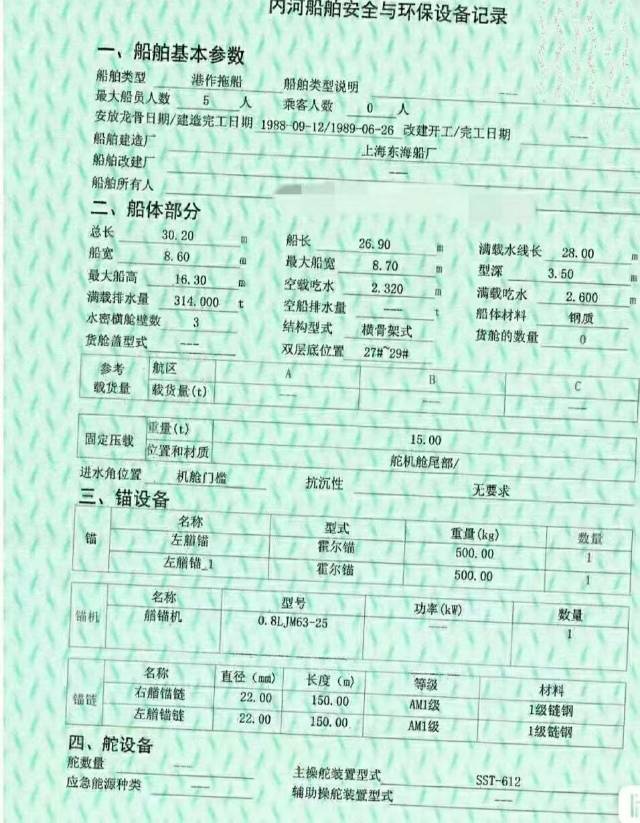 内河船舶安全与环保设备记录
一、船舶基本参数
船舶类型 港作拖船 船舶类型说明 ——
最大船员人数 5 人 乘客人数 0 人
安放龙骨日期/建造完工日期 1988-09-12/1989-06-26 改建开工/完工日期 ——
船舶建造厂 上海东海船厂
船舶改建厂 ——
船舶所有人
二、船体部分
总长 30.20 m 船长 26.90 m 满载水线长 28.00 m
船宽 8.60 m 最大船宽 8.70 m 型深 3.50 m
最大船高 16.30 m 空载吃水 2.320 m 满载吃水 2.600 m
满载排水量 314.000 t 空船排水量 —— t 船体材料 钢质
水密横舱壁数 3 结构型式 横骨架式 货舱的数量 0
货舱盖型式 —— 双层底位置 27#~29#
参考载货量 航区 A B C
载货量(t) —— —— ——
固定压载 重量(t) 15.00
位置和材质 舵机舱尾部/
进水角位置 机舱门槛 抗沉性 无要求
三、锚设备
锚 名称 型式 重量(kg) 数量
左艏锚 霍尔锚 500.00 1
左艏锚_1 霍尔锚 500.00 1
锚机 名称 型号 功率(kW) 数量
艏锚机 0.8LJM63-25 —— 1
锚链 名称 直径(mm) 长度(m) 等级 材料
右艏锚链 22.00 150.00 AM1级 1级链钢
左艏锚链 22.00 150.00 AM1级 1级链钢
四、舵设备
舵数量 —— 主操舵装置型式 SST-612
应急能源种类 —— 辅助操舵装置型式 ——